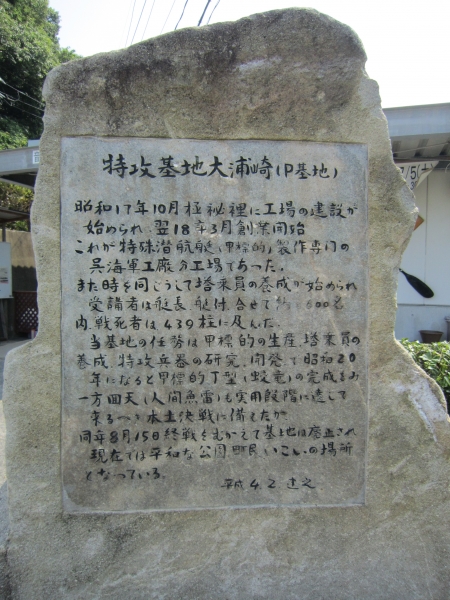 特攻基地大浦崎(P基地)
昭和17年10月極秘裡に工場の建設が
始められ、翌18年3月創業開始
これが特殊潜航艇(甲標的)製作専門の
呉海軍工廠分工場であった。
また時を同じうして塔乗員の養成が始められ
受講者は艇長、艇付、合せて 600名
内、戦死者は439柱に及んだ。
当基地の任務は甲標的の生産、塔乗員の
養成、特攻兵器の研究、開発で昭和20
年になると甲標的丁型(蛟竜)の完成をみ
一方回天(人間魚雷)も実用段階に達して
来るべき本土決戦に備えたが
同年8月15日終戦をむかえて基地は廃止され
現在では平和な公園、町民いこいの場所
となっている。
平成4.2 建之
7/5(土)